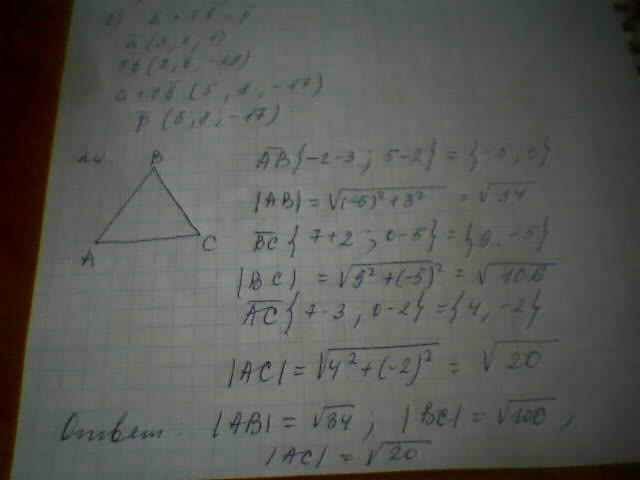 б) ā + 2b̄ = p̄
ā (3, 2, 1)
2b̄ (2, 6, -18)
ā + 2b̄ (5, 8, -17)
p̄ (5, 8, -17)
24.
B
A
C
AB {-2-3; 5-2} = {-5, 3}
|AB| = √(-5)²+3² = √34
BC {7+2; 0-5} = {9, -5}
|BC| = √9²+(-5)² = √106
AC {7-3, 0-2} = {4, -2}
|AC| = √4²+(-2)² = √20
Ответ: |AB| = √34; |BC| = √106,
|AC| = √20